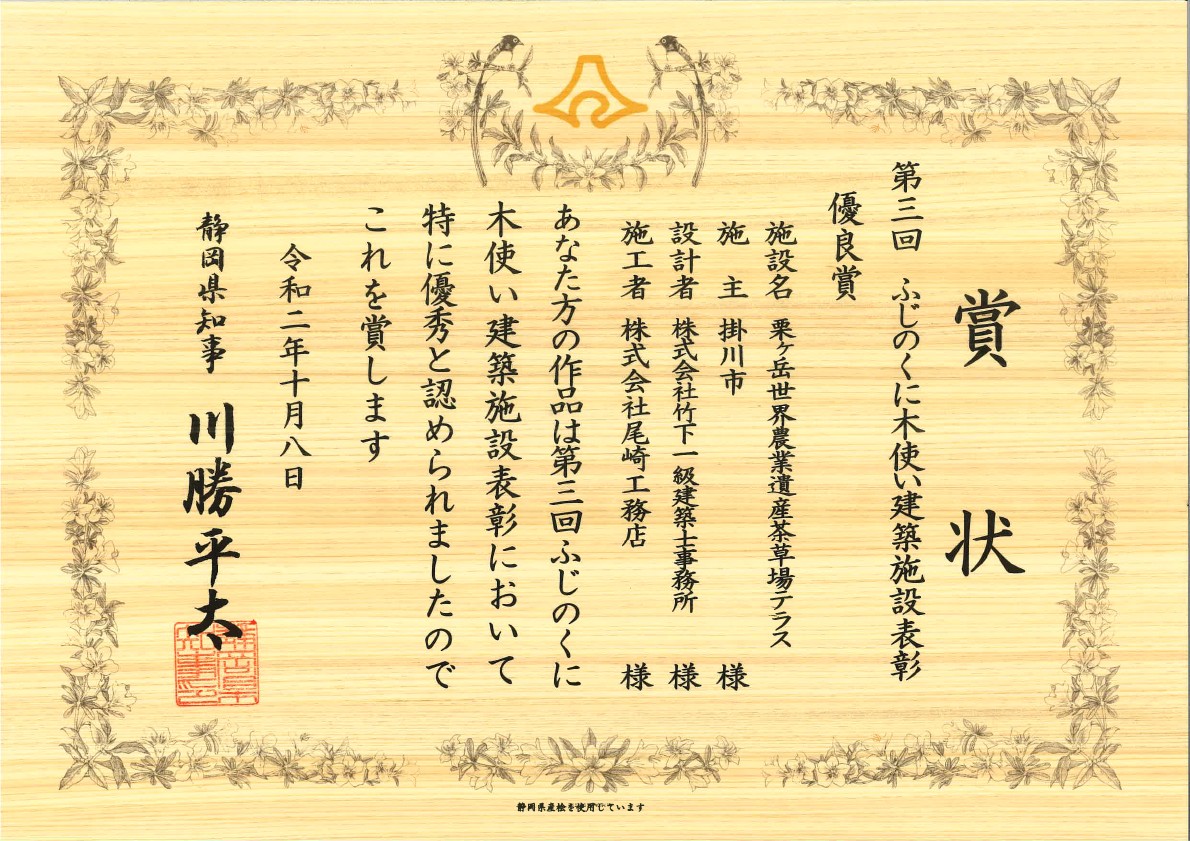 賞状
第三回 ふじのくに木使い建築施設表彰
優良賞
施設名 栗ヶ岳世界農業遺産茶草場テラス
施主 掛川市 様
設計者 株式会社竹下一級建築士事務所 様
施工者 株式会社尾崎工務店 様
あなた方の作品は第三回ふじのくに
木使い建築施設表彰において
特に優秀と認められましたので
これを賞します
令和二年十月八日
静岡県知事 川勝平太
静岡県知事之印
静岡県産桧を使用しています